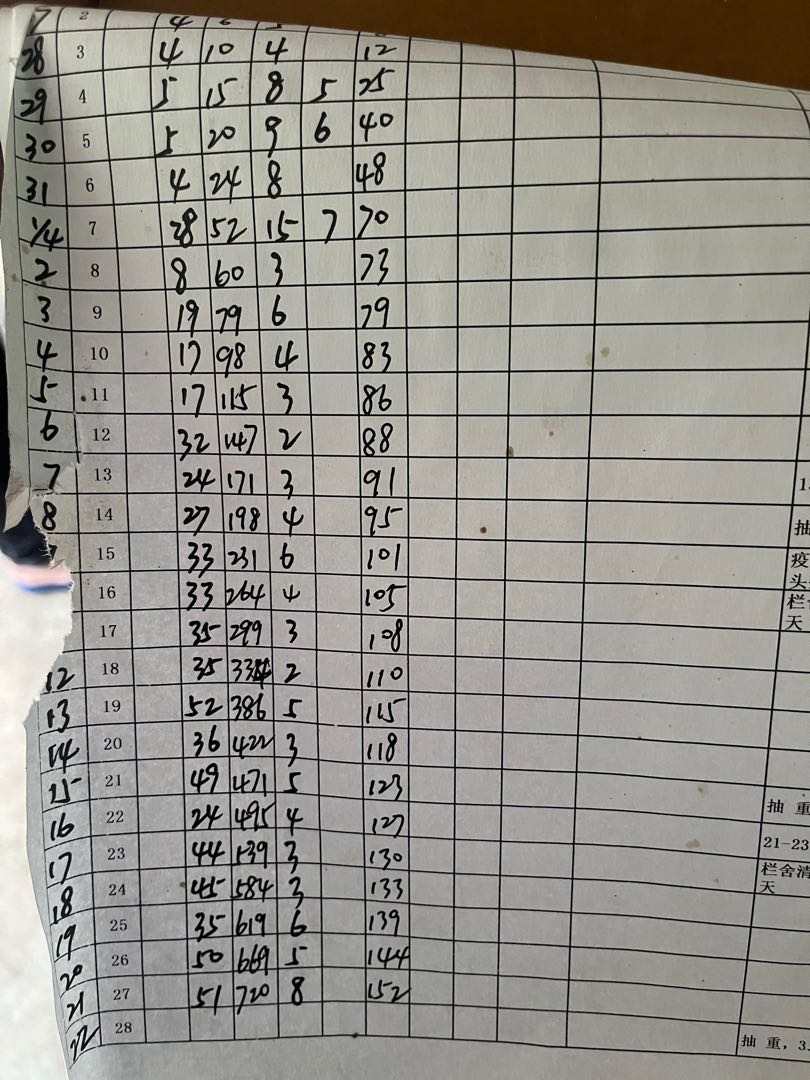 2 4 6
28 3 4 10 4 12
29 4 5 15 8 5 25
30 5 5 20 9 6 40
31 6 4 24 8 48
1/4 7 28 52 15 7 70
2 8 8 60 3 73
3 9 19 79 6 79
4 10 17 98 4 83
5 11 17 115 3 86
6 12 32 147 2 88
7 13 24 171 3 91
8 14 27 198 4 95
15 33 231 6 101
16 33 264 4 105
17 35 299 3 108
12 18 35 334 2 110
13 19 52 386 5 115
14 20 36 422 3 118
15 21 49 471 5 123
16 22 24 495 4 127
17 23 44 539 3 130
18 24 45 584 3 133
19 25 35 619 6 139
20 26 50 669 5 144
21 27 51 720 8 152
22 28
抽
疫
头
栏舍
天
抽 重
21-23
栏舍清
天
抽 重,3.